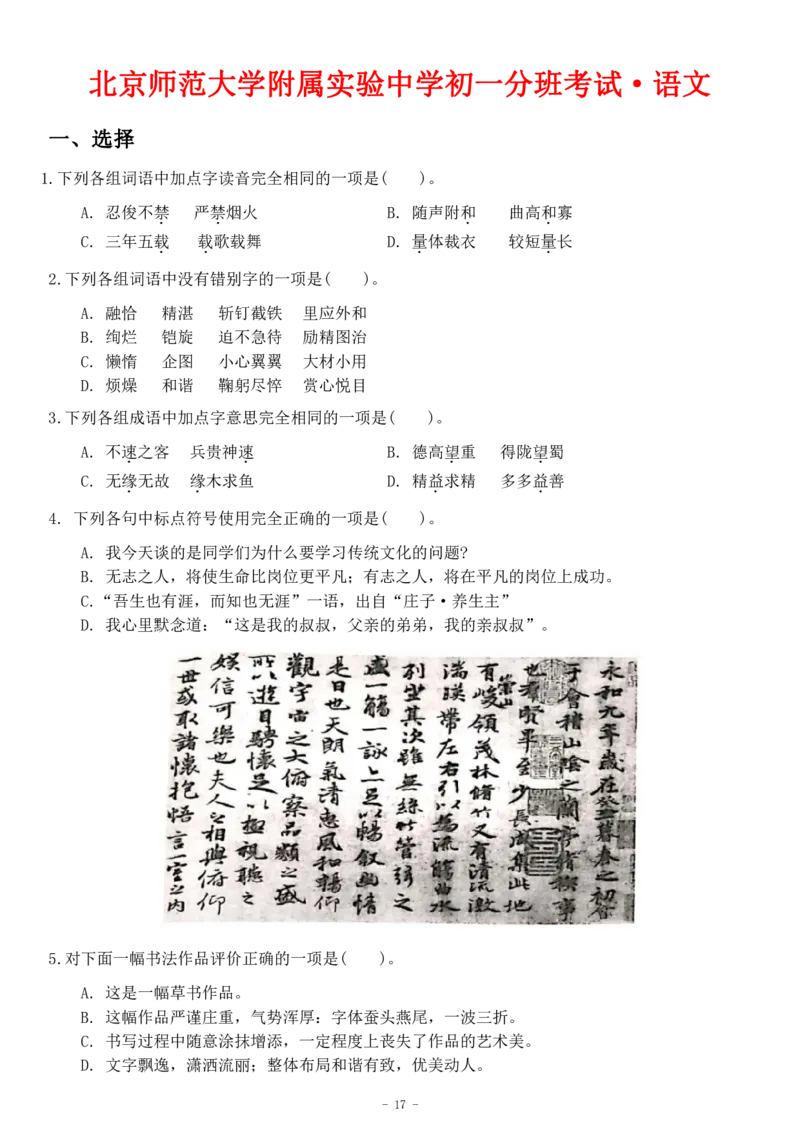 北京师范大学附属实验中学初一分班考试·语文
一、选择
1.下列各组词语中加点字读音完全相同的一项是(　　)。
A. 忍俊不禁　严禁烟火　B. 随声附和　曲高和寡
C. 三年五载　载歌载舞　D. 量体裁衣　较短量长
2.下列各组词语中没有错别字的一项是(　　)。
A. 融恰　精湛　斩钉截铁　里应外和
B. 绚烂　铠旋　迫不急待　励精图治
C. 懒惰　企图　小心翼翼　大材小用
D. 烦燥　和谐　鞠躬尽悴　赏心悦目
3.下列各组成语中加点字意思完全相同的一项是(　　)。
A. 不速之客　兵贵神速　B. 德高望重　得陇望蜀
C. 无缘无故　缘木求鱼　D. 精益求精　多多益善
4. 下列各句中标点符号使用完全正确的一项是(　　)。
A. 我今天谈的是同学们为什么要学习传统文化的问题?
B. 无志之人，将使生命比岗位更平凡；有志之人，将在平凡的岗位上成功。
C.“吾生也有涯，而知也无涯”一语，出自“庄子·养生主”
D. 我心里默念道：“这是我的叔叔，父亲的弟弟，我的亲叔叔”。
永和九年歲在癸丑暮春之初會
于會稽山陰之蘭亭脩稧事
也羣賢畢至少長咸集此地
有崇山峻領茂林脩竹又有清流激
湍暎帶左右引以為流觴曲水
列坐其次雖無絲竹管弦之
盛一觴一詠亦足以暢敘幽情
是日也天朗氣清惠風和暢仰
觀宇宙之大俯察品類之盛
所以遊目騁懷足以極視聽之
娛信可樂也夫人之相與俯仰
一世或取諸懷抱悟言一室之內
5.对下面一幅书法作品评价正确的一项是(　　)。
A. 这是一幅草书作品。
B. 这幅作品严谨庄重，气势浑厚：字体蚕头燕尾，一波三折。
C. 书写过程中随意涂抹增添，一定程度上丧失了作品的艺术美。
D. 文字飘逸，潇洒流丽；整体布局和谐有致，优美动人。
- 17 -